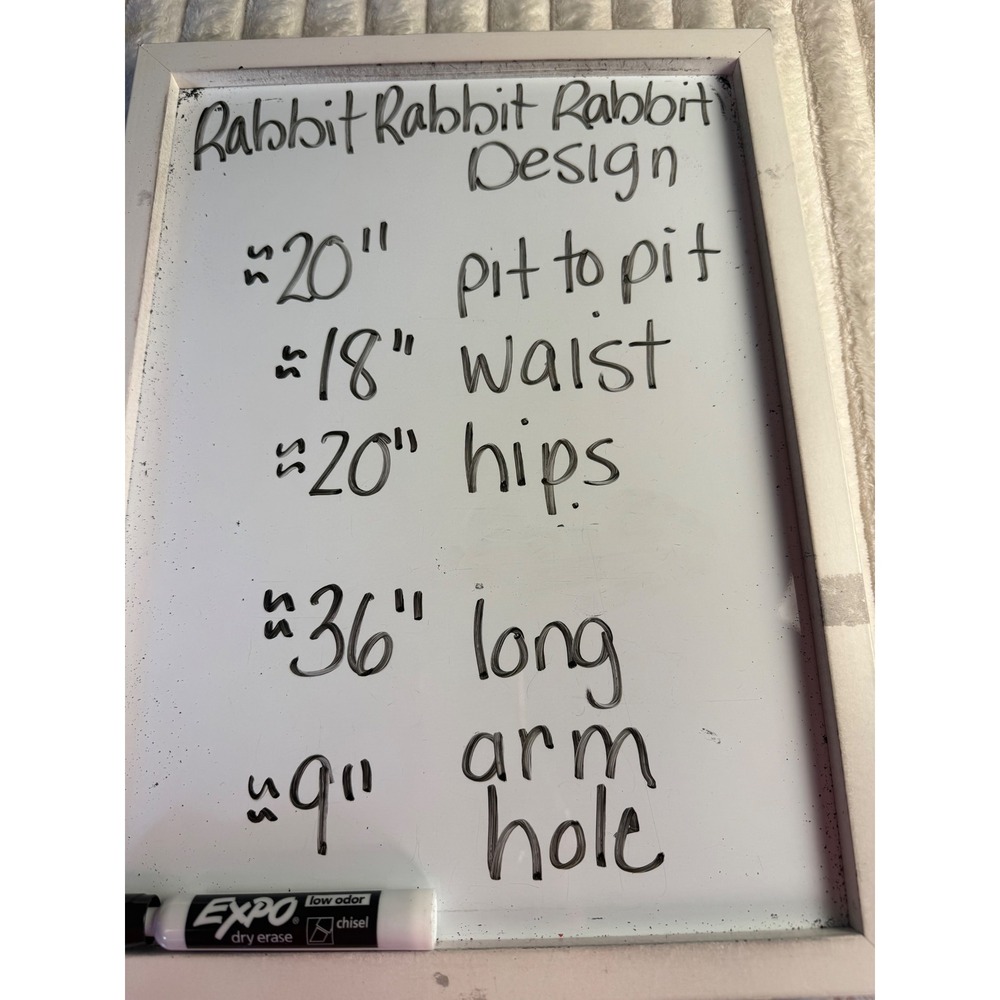 Rabbit Rabbit Rabbit
Design
≈20" pit to pit
≈18" waist
≈20" hips
≈36" long
≈9" arm
hole
EXPO® low odor
dry erase chisel